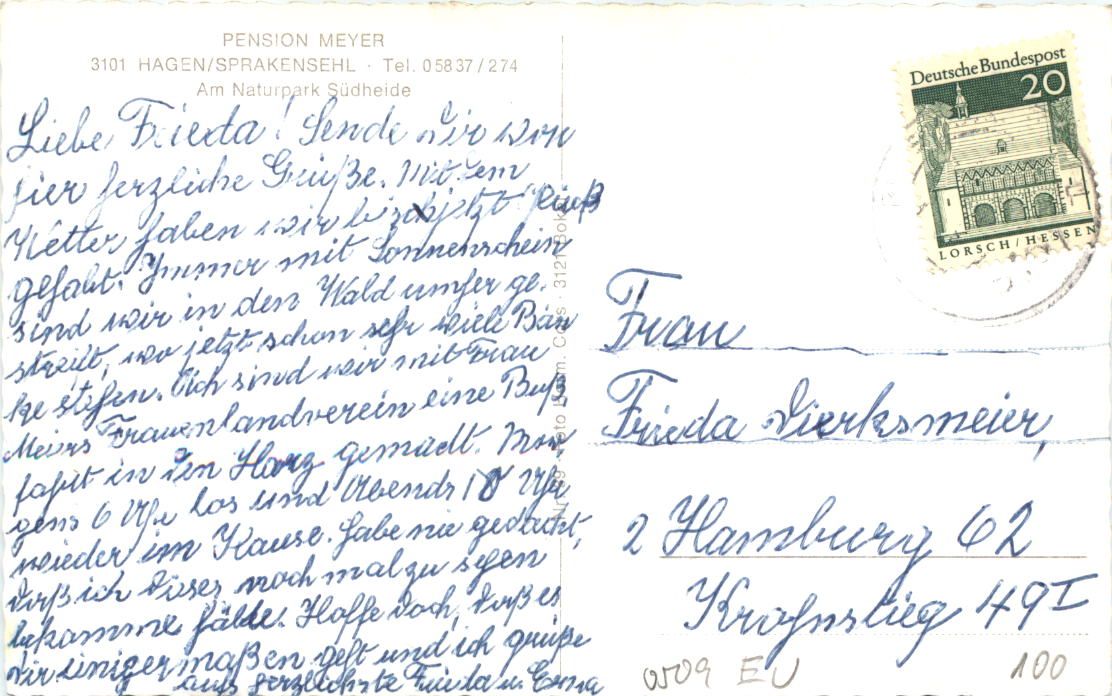 PENSION MEYER
3101 HAGEN/SPRAKENSEHL · Tel. 05837/274
Am Naturpark Südheide
Liebe Frieda! Sende Dir von
hier herzliche Grüße. Mit dem
Wetter haben wir bis jetzt
gehabt. Immer mit Sonnenschein
sind wir in den Wald umher ge-
streift, wo jetzt schon sehr viele Bän
ke stehen. Auch sind wir mit Frau
Meiers Frauenlandverein eine Buß
fahrt in den Harz gemacht. Mor
gens 6 Uhr los und Abends 10 Uhr
wieder im Hause. Habe nie gedacht,
daß ich dieses noch mal zu sehen
bekomme. Hoffe doch, daß es
Dir einigermaßen geht und ich grüße
aufs herzlichste Frieda u. Erna
Foto 3121
Deutsche Bundespost
20
LORSCH/HESSEN
Frau
Frieda Dierksmeier,
2 Hamburg 62
Krohnstieg 49 I
0509 EU 100